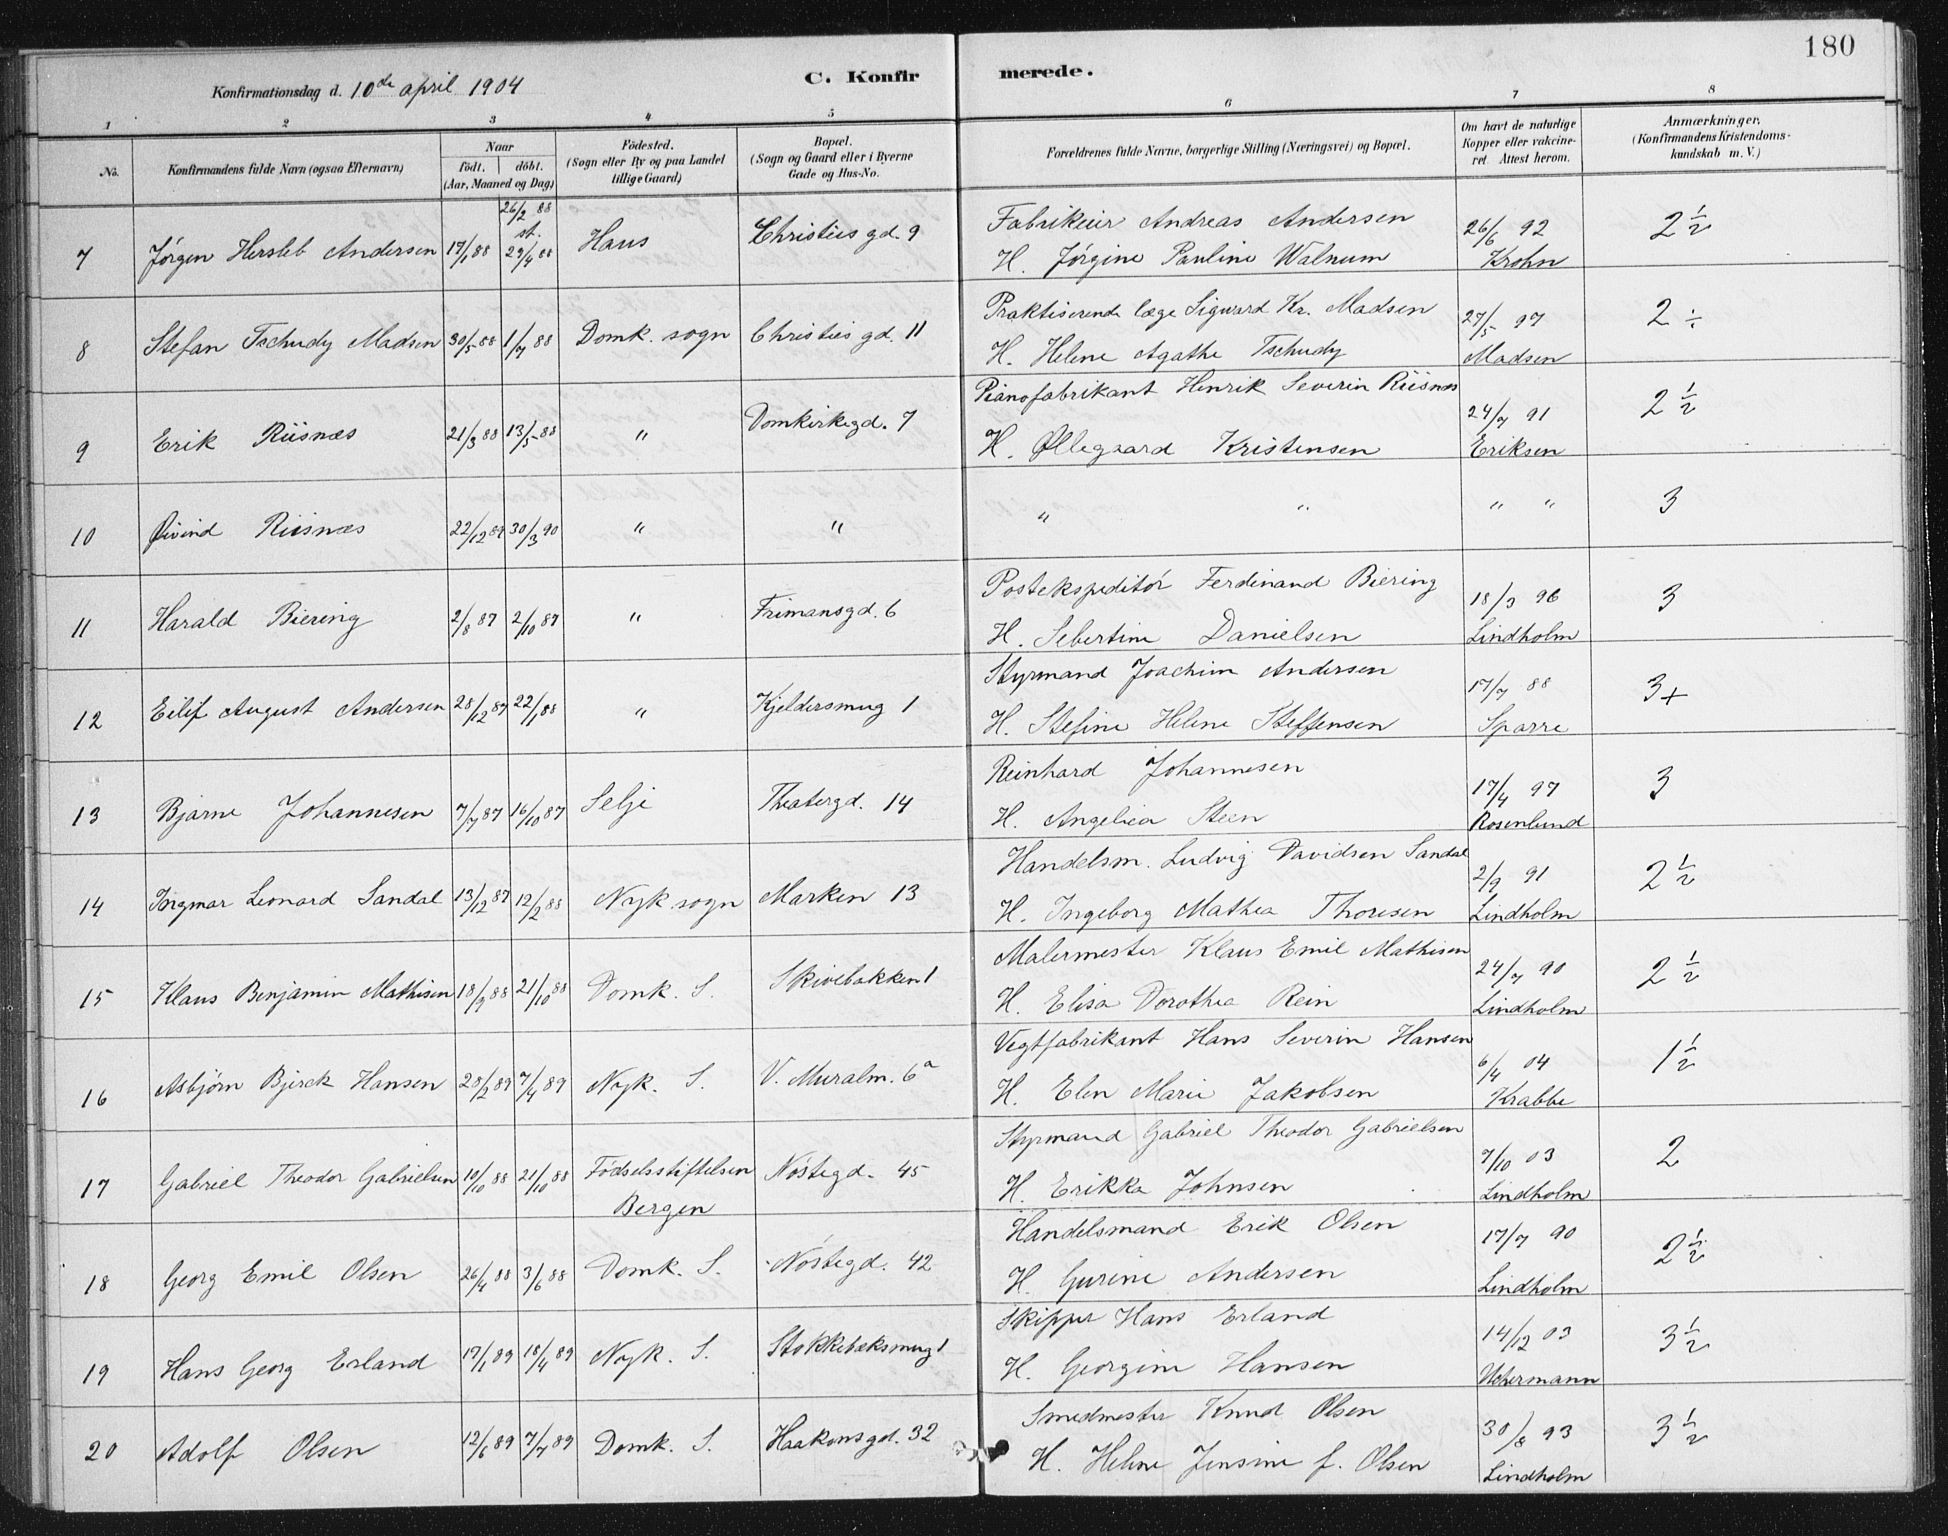 180
Konfirmationsdag d. 10de april 1904
C. Konfirmerede.
1 2 3 4 5 6 7 8
No. Konfirmandens fulde Navn (ogsaa Efternavn) Naar födt. döbt. (Aar, Maaned og Dag) Födested. (Sogn eller By og paa Landet tillige Gaard) Bopæl. (Sogn og Gaard eller i Byerne Gade og Hus-No. Forældrenes fulde Navne, borgerlige Stilling (Næringsvei) og Bopæl. Om havt de naturlige Kopper eller vakcineret. Attest herom. Anmærkninger. (Konfirmandens Kristendomskundskab m.V.)
7 Jørgen Hersleb Andersen 17/1 88 26/2 88 st. 29/4 88 Haus Christies gd. 9 Fabrikeier Andreas Andersen 26/6 92 2 1/2
H. Jørgine Pauline Walnum Krohn
8 Stefan Tschudy Madsen 30/5 88 1/7 88 Domk. sogn Christies gd. 11 Praktiserende læge Sigward Kr. Madsen 27/5 97 2 ÷
H. Helene Agathe Tschudy Madsen
9 Erik Riisnæs 21/3 88 13/5 88 " Domkirkegd. 7 Pianofabrikant Henrik Severin Riisnæs 24/7 91 2 1/2
H. Øllegaard Kristensen Eriksen
10 Øivind Riisnæs 22/12 89 30/3 90 " " " " " " 3
11 Harald Biering 2/8 87 2/10 87 " Frimansgd. 6 Postekspeditør Ferdinand Biering 18/3 96 3
H. Sebertine Danielsen Lindholm
12 Eilif August Andersen 28/12 87 22/1 88 " Kjeldersmug 1 Styrmand Joachim Andersen 17/7 88 3+
H. Stefine Helene Steffensen Sparre
13 Bjarne Johannesen 7/7 87 16/10 87 Selje Theatergd. 14 Reinhard Johannesen 17/4 97 3
H. Angelica Steen Rosenlund
14 Ingmar Leonard Sandal 13/12 87 12/2 88 Nyk sogn Marken 13 Handelsm. Ludvig Davidsen Sandal 2/9 91 2 1/2
H. Ingeborg Mathea Thoresen Lindholm
15 Klaus Benjamin Mathisen 18/9 88 21/10 88 Domk. S. Skivebakken 1 Malermester Klaus Emil Mathisen 24/7 90 2 1/2
H. Elisa Dorothea Rein Lindholm
16 Asbjörn Bjerck Hansen 28/2 89 7/4 89 Nyk. S. V. Muralm. 6a Vegtfabrikant Hans Severin Hansen 6/4 04 1 1/2
H. Elen Marie Jakobsen Krabbe
17 Gabriel Theodor Gabrielsen 10/10 88 21/10 88 Födselsstiftelsen Bergen Nöstegd. 45 Styrmand Gabriel Theodor Gabrielsen 7/10 03 2
H. Erikka Johnsen Lindholm
18 Georg Emil Olsen 26/4 88 3/6 88 Domk. S. Nöstegd. 42 Handelsmand Erik Olsen 17/7 90 2 1/2
H. Gurine Andersen Lindholm
19 Hans Georg Erland 17/1 89 18/4 89 Nyk. S. Stokkebæksmug 1 Skipper Hans Erland 14/12 03 3 1/2
H. Georgine Hansen Uchermann
20 Adolf Olsen 12/6 89 7/7 89 Domk. S. Haakonsgd. 32 Smedmester Knud Olsen 30/8 93 3 1/2
H. Helene Jensine f. Olsen Lindholm